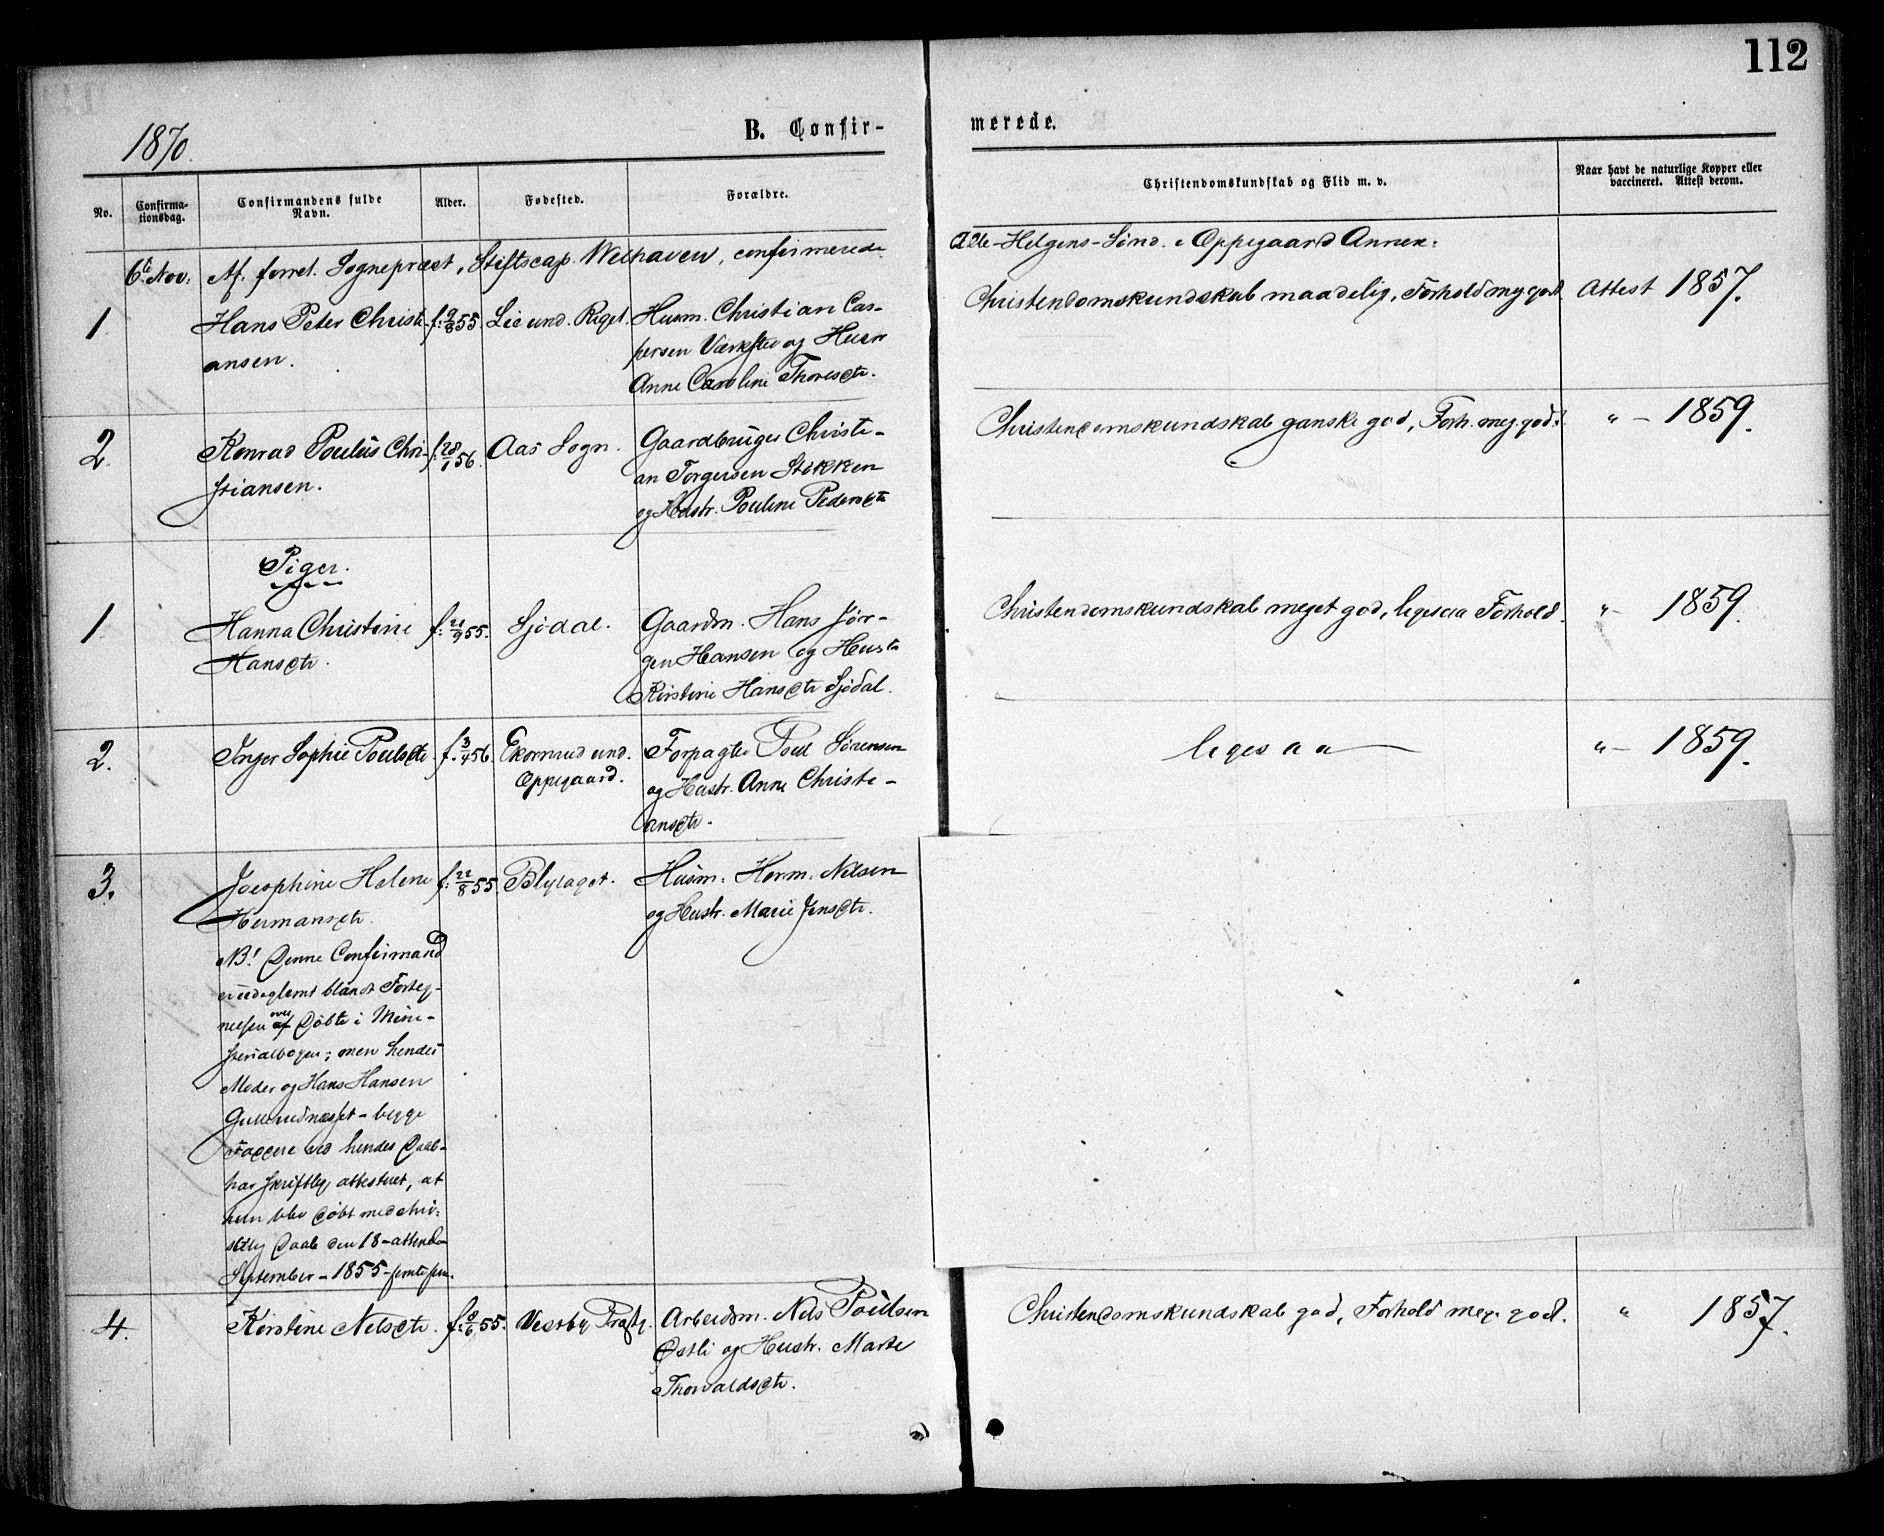 112
1870.
B. Confir-
merede.
No.
Confirma-
tionsdag.
Confirmandens fulde
Navn.
Alder.
Fødested.
Forældre.
Christendomskundskab og Flid m. v.
Naar havt de naturlige Kopper eller
vaccineret. Attest derom.
6te Nov. Af forret. Sognepræst, Stiftscap. Welhaven, confirmerede
Alle-Helgens-Sönd. i Oppegaard Annex:
1.
Hans Peter Christi-
ansen.
f. 9/8 55.
Lie und. Riget.
Husm. Christian Cas-
persen Værksted og Hustr
Anne Caroline Thoresdtr.
Christendomskundskab maadelig, Forhold meg. godt
Attest 1857.
2.
Konrad Poulus Chri-
stiansen.
f. 28/1 56.
Aas Sogn.
Gaardbruger Christi-
an Torgersen Stikken
og Hustr. Pouline Pedersdtr
Christendomskundskab ganske god, Forh. meg. godt.
" - 1859.
Piger.
1.
Hanna Christine
Hansdtr.
f. 21/9 55.
Sjödal.
Gaardm. Hans Jør-
gen Hansen og Hustr
Kirstine Hansdtr Sjödal.
Christendomskundskab meget god, ligesaa Forhold.
" - 1859.
2.
Inger Sophie Poulsdtr
f. 3/4 56.
Ekornrud und.
Oppegaard.
Forpagter Poul Sörensen
og Hustr. Anne Christi-
ansdtr.
ligesaa
" - 1859.
3.
Josephine Helene
Hermansdtr.
f. 22/8 55.
Blylaget.
Husm. Herm. Nilsen
og Hustr. Marie Jensdtr.
NB! Denne Confirmand
er udeglemt blandt Forteg-
nelsen over af Döbte i Mini-
sterialbogen; men hendes
Moder og Hans Hansen
Gullerudnæsset - begge
Faddere ved hendes Daab -
har skriftlig attesteret, at
hun blev döbt med chri-
stelig Daab den 18 - attende
September - 1855 - femtifem.
4.
Kirstine Nilsdtr.
f. 8/6 55.
Vestby Præstg.
Arbeidsm. Nils Poulsen
Østli og Hustr. Marte
Thorvaldsdtr.
Christendomskundskab god, Forhold meg. godt.
" 1857.